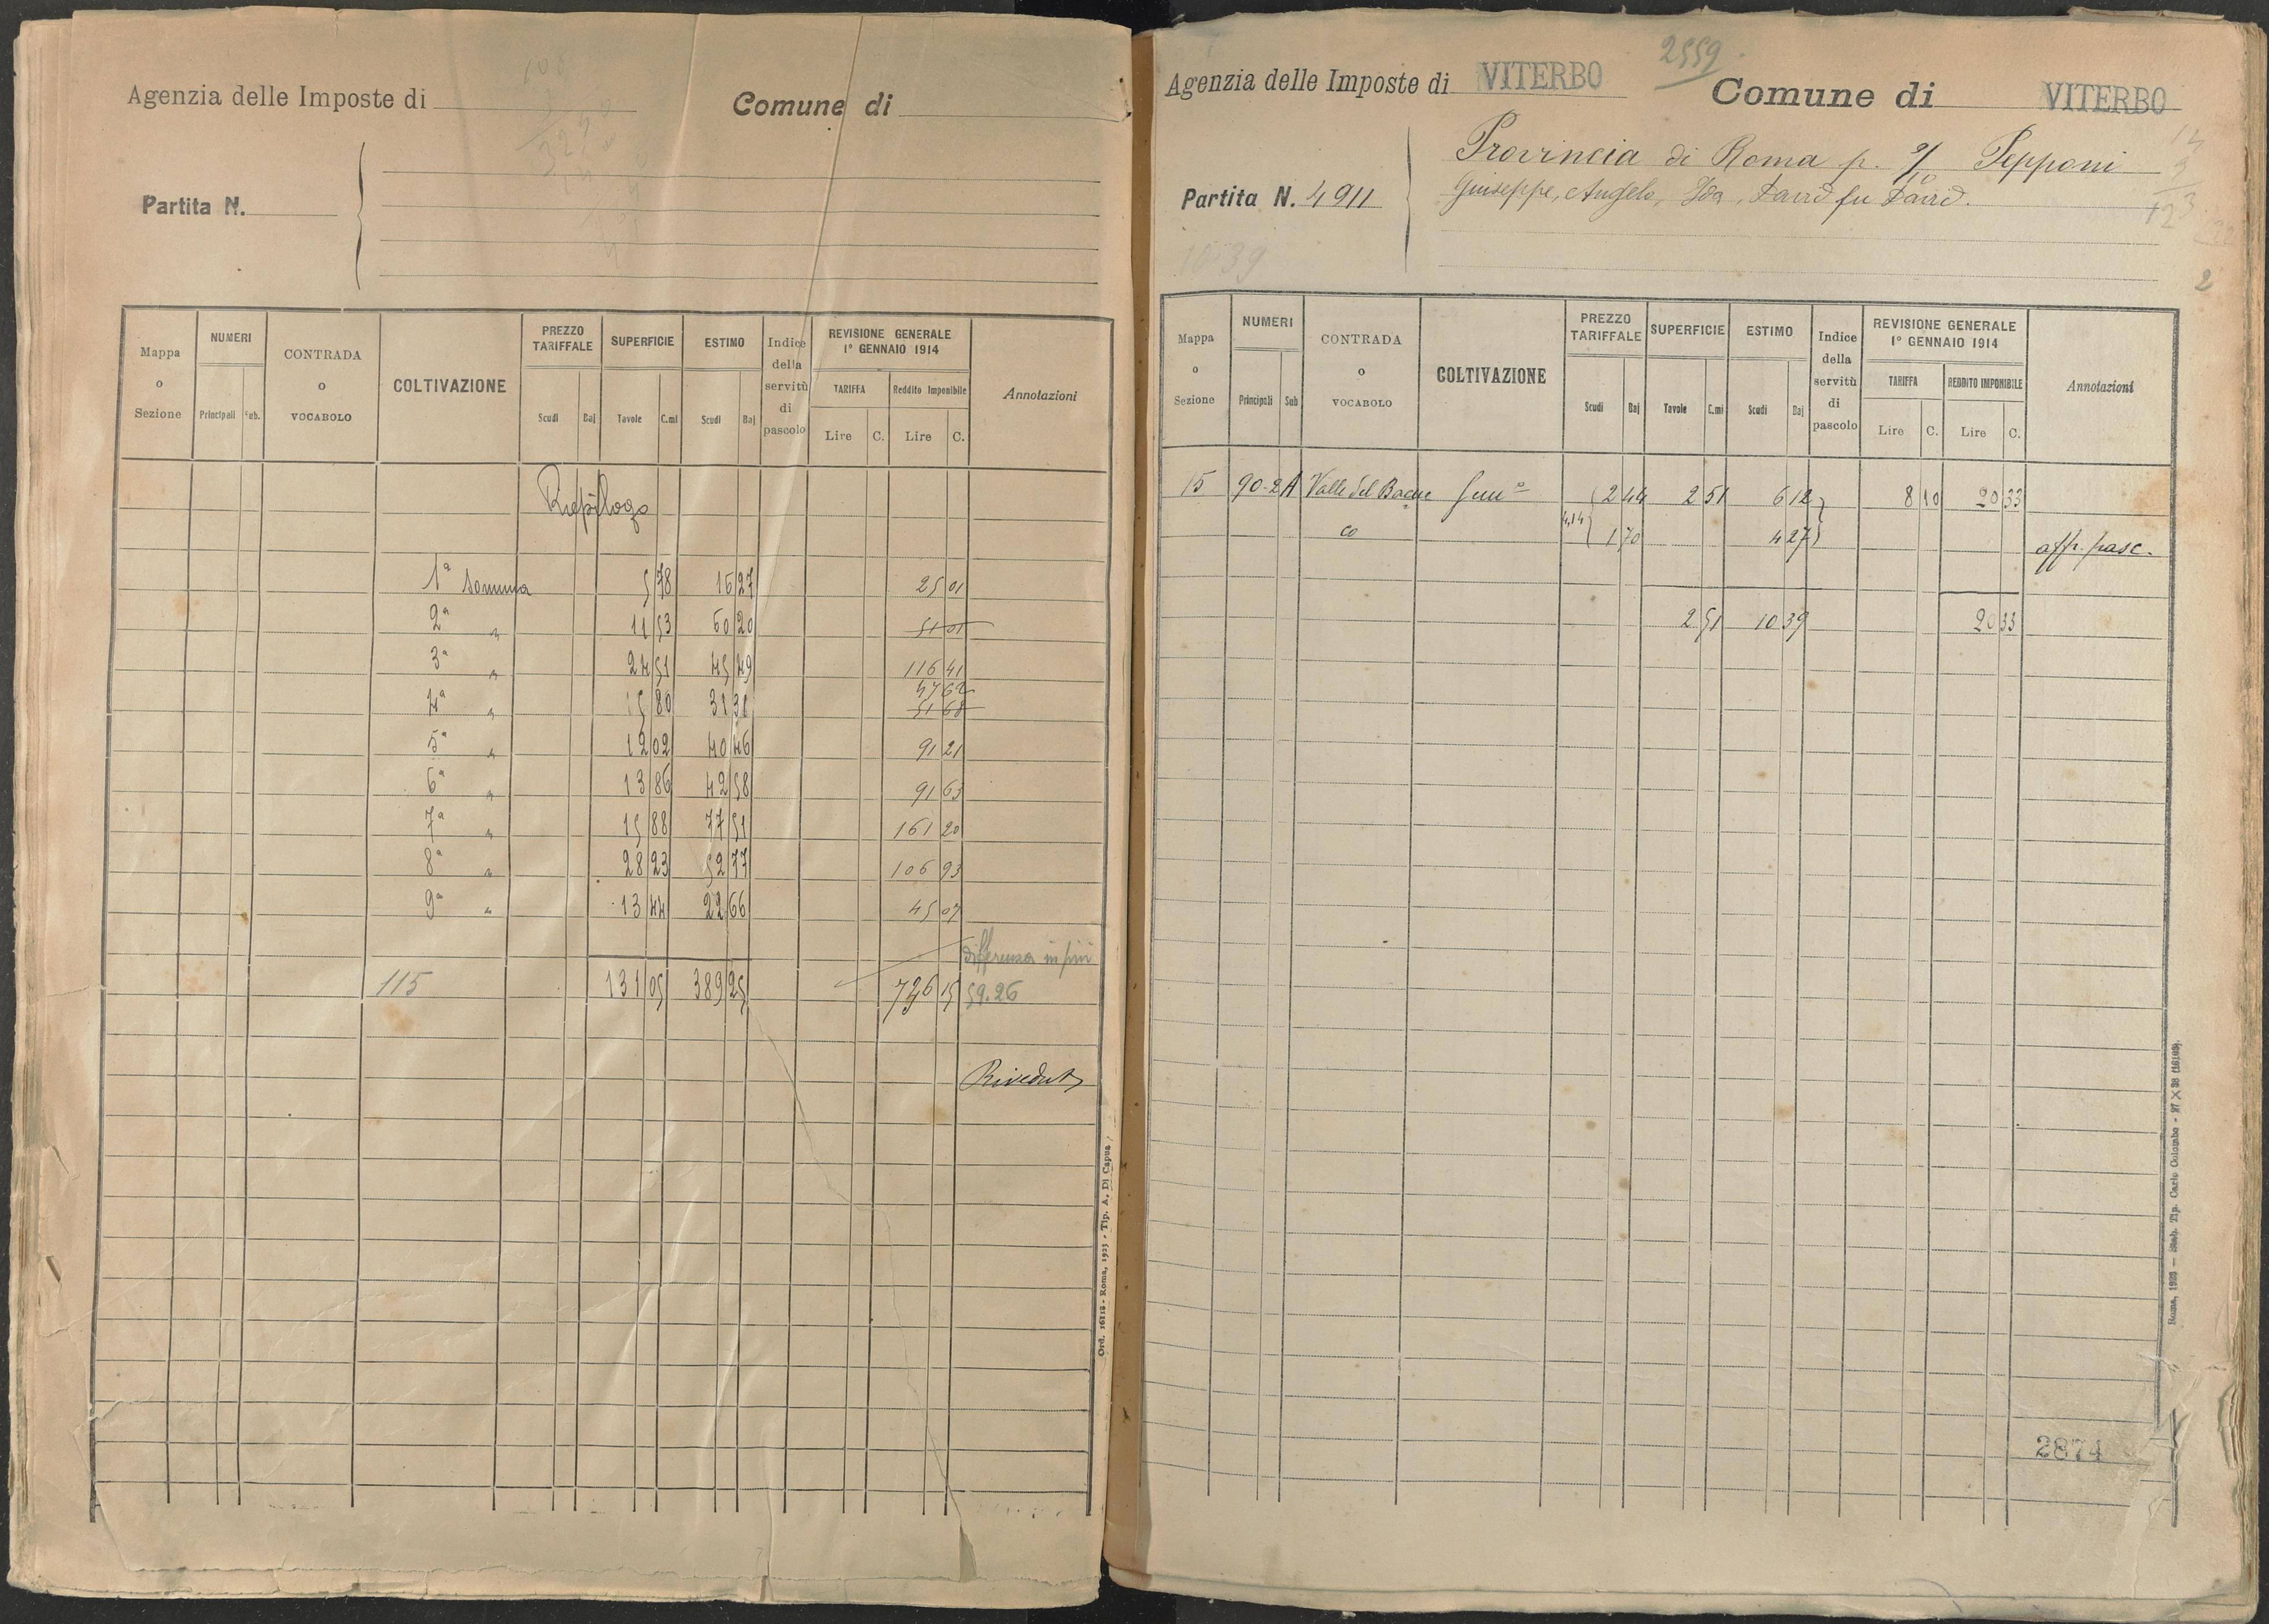 Agenzia delle Imposte di
Comune di
Partita N.
Mappa o Sezione
NUMERI
Principali Sub.
CONTRADA o VOCABOLO
COLTIVAZIONE
PREZZO TARIFFALE
Scudi Baj
SUPERFICIE
Tavole C.mi
ESTIMO
Scudi Baj
Indice della servitù di pascolo
REVISIONE GENERALE 1º GENNAIO 1914
TARIFFA
Lire C.
Reddito Imponibile
Lire C.
Annotazioni
Riepilogo
1ª somma 5 78 16 27 25 01
2ª " 11 53 60 20 51 01
3ª " 24 51 45 49 116 41
47 62
4ª " 15 80 31 31 51 68
5ª " 12 02 40 46 91 21
6ª " 13 86 42 58 91 63
7ª " 15 88 77 51 161 20
8ª " 28 23 52 77 106 93
9ª " 13 44 22 66 45 07
differenza in più
115 131 05 389 25 726 15 59.26
Riveduto
Ord. 16718 - Roma, 1923 - Tip. A. Di Capua
2559
Agenzia delle Imposte di VITERBO
Comune di VITERBO
Partita N. 4911
Provincia di Roma p. 9/10 Pepponi
Giuseppe, Angelo, Ida, David fu David.
10.39
2
Mappa o Sezione
NUMERI
Principali Sub
CONTRADA o VOCABOLO
COLTIVAZIONE
PREZZO TARIFFALE
Scudi Baj
SUPERFICIE
Tavole C.mi
ESTIMO
Scudi Baj
Indice della servitù di pascolo
REVISIONE GENERALE 1º GENNAIO 1914
TARIFFA
Lire C.
REDDITO IMPONIBILE
Lire C.
Annotazioni
15 90-2A Valle del Bacuc Semº 2 44 2 51 6 12 8 10 20 33
co 4,14 1 70 4 27 affr. pasc.
2 51 10 39 20 33
Roma, 1925 — Stab. Tip. Carlo Colombo - 27 X 38 (16109).
2874